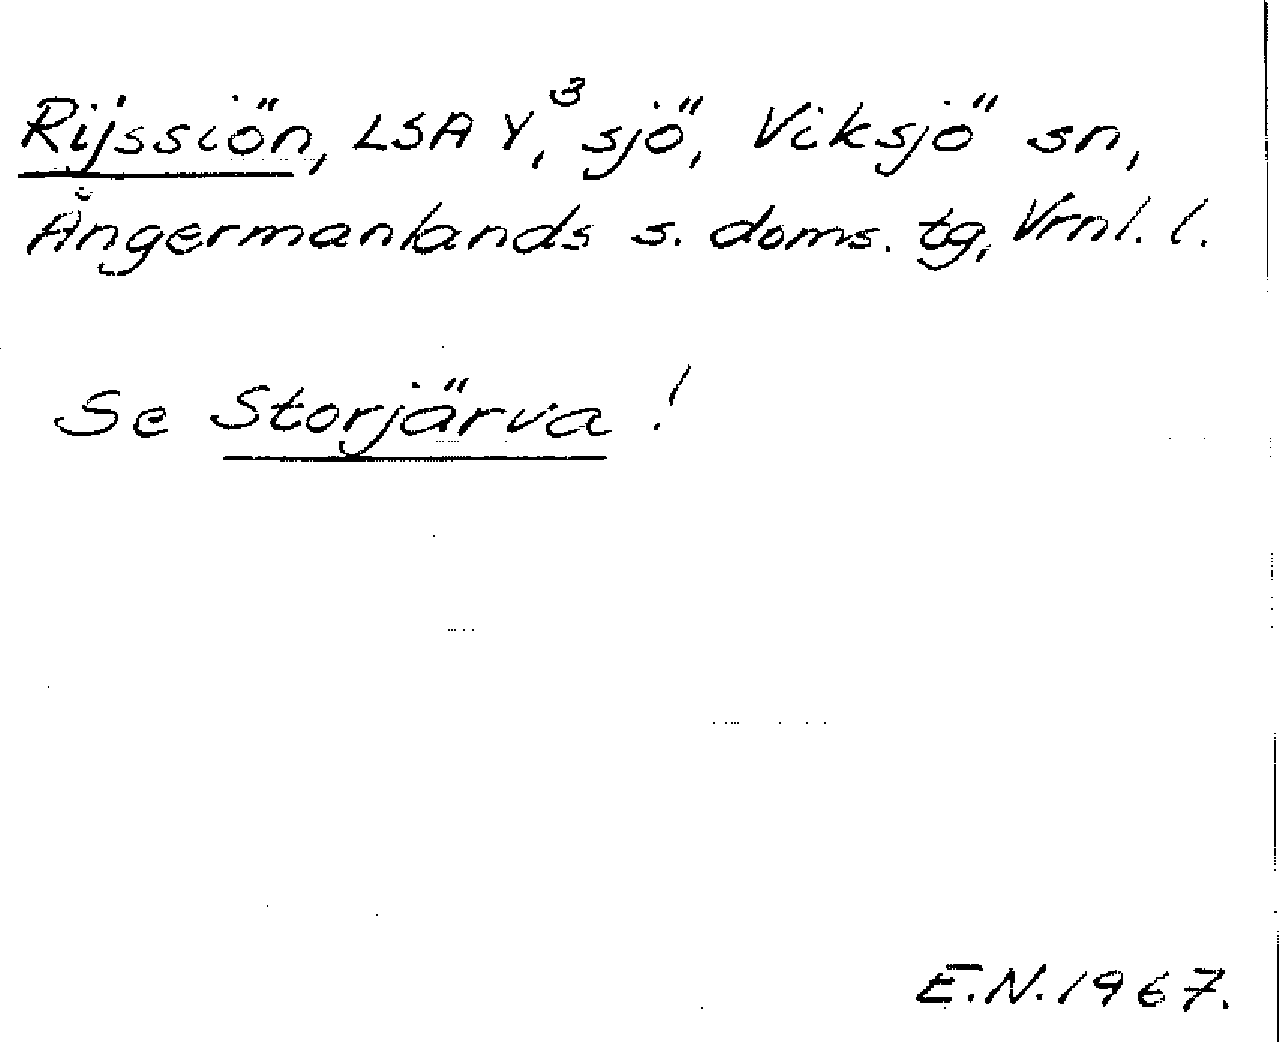 Rijssiön, LSA Y³, sjö, Viksjö sn,
Ångermanlands s. doms. tg, Vrnl. l.
Se Storjärva !
E.N. 1967.